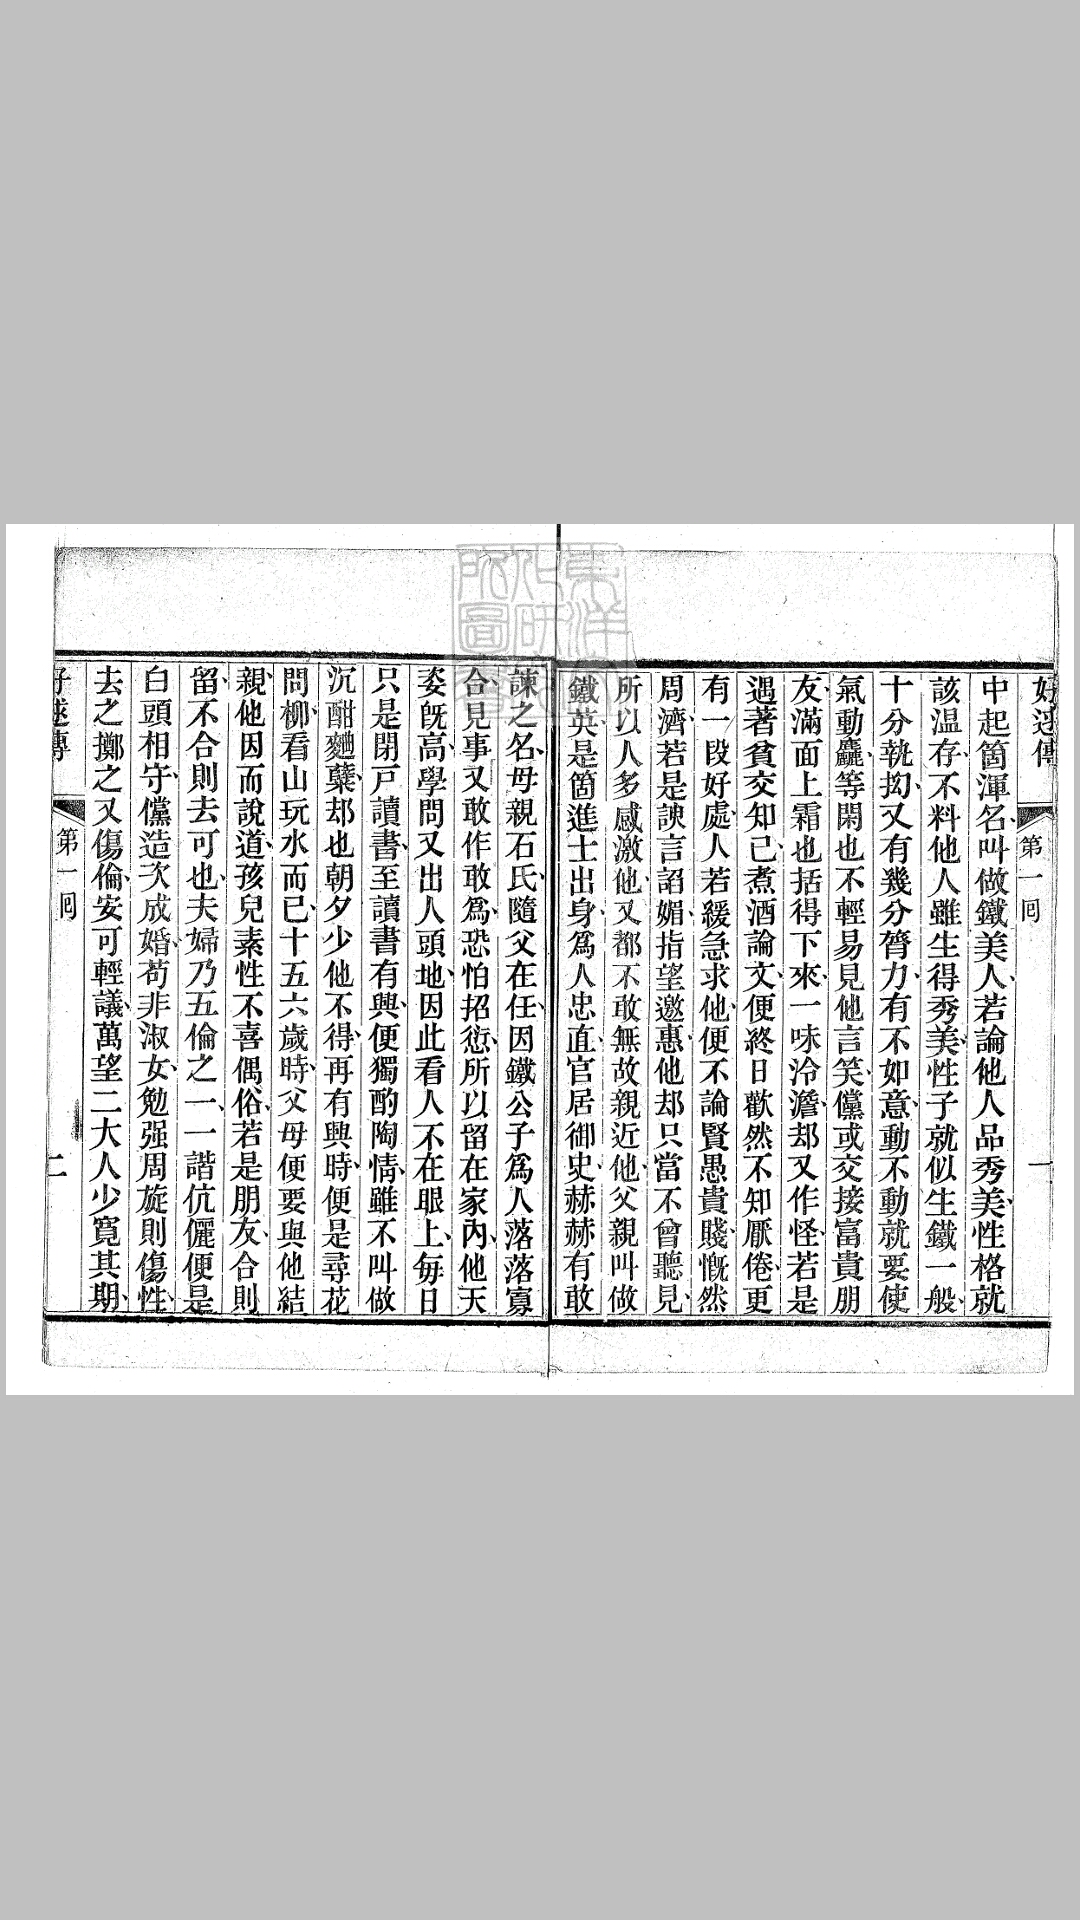 好逑傳 第一囘 一
中起箇渾名叫做鐵美人、若論他人品秀美、性格就
該温存、不料他人雖生得秀美、性子就似生鐵一般、
十分執拗、又有幾分膂力、有不如意、動不動就要使
氣動麤、等閑也不輕易見他言笑、儻或交接富貴朋
友、滿面上霜也括得下來、一味冷澹、却又作怪、若是
遇著貧交知己、煮酒論文、便終日歡然不知厭倦、更
有一段好處、人若緩急求他、便不論賢愚貴賤、慨然
周濟、若是諛言諂媚、指望邀惠、他却只當不曾聽見、
所以人多感激他、又都不敢無故親近他、父親叫做
鐵英、是箇進士出身、爲人忠直、官居御史、赫赫有敢
諫之名、母親石氏、隨父在任、因鐵公子爲人落落寡
合、見事又敢作敢爲、恐怕招愆、所以留在家內、他天
姿旣高、學問又出人頭地、因此看人不在眼上、每日
只是閉戸讀書、至讀書有興、便獨酌陶情、雖不叫做
沉酣麯蘖、却也朝夕少他不得、再有興時、便是尋花
問柳、看山玩水而已、十五六歲時、父母便要與他結
親、他因而說道、孩兒素性不喜偶俗、若是朋友、合則
留、不合則去可也、夫婦乃五倫之一、一諧伉儷、便是
白頭相守、儻造次成婚、苟非淑女、勉强周旋則傷性、
去之擲之又傷倫、安可輕議、萬望二大人少寛其期、
好逑傳 第一囘 二